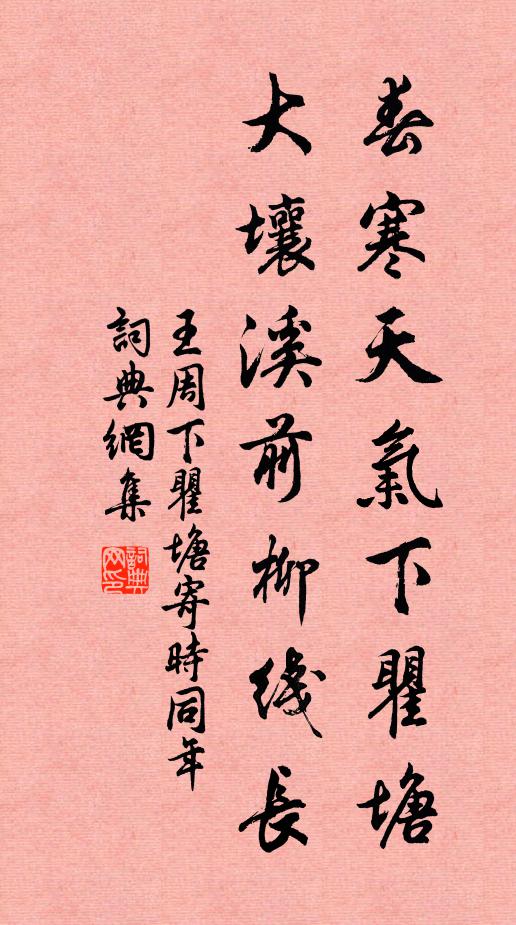 春寒天氣下瞿塘
大壤溪前柳綫長
王周下瞿塘寄時同年
詞典網集
詞典网印